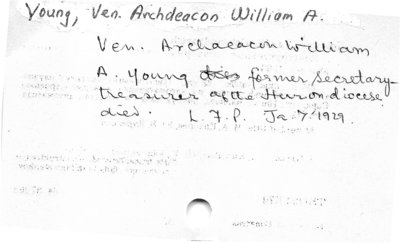 Young, Ven. Archdeacon William A.
Ven. Archdeacon William
A. Young former secretary-
treasurer of the Huron diocese
died. L.F.P. Ja. 7. 1929.